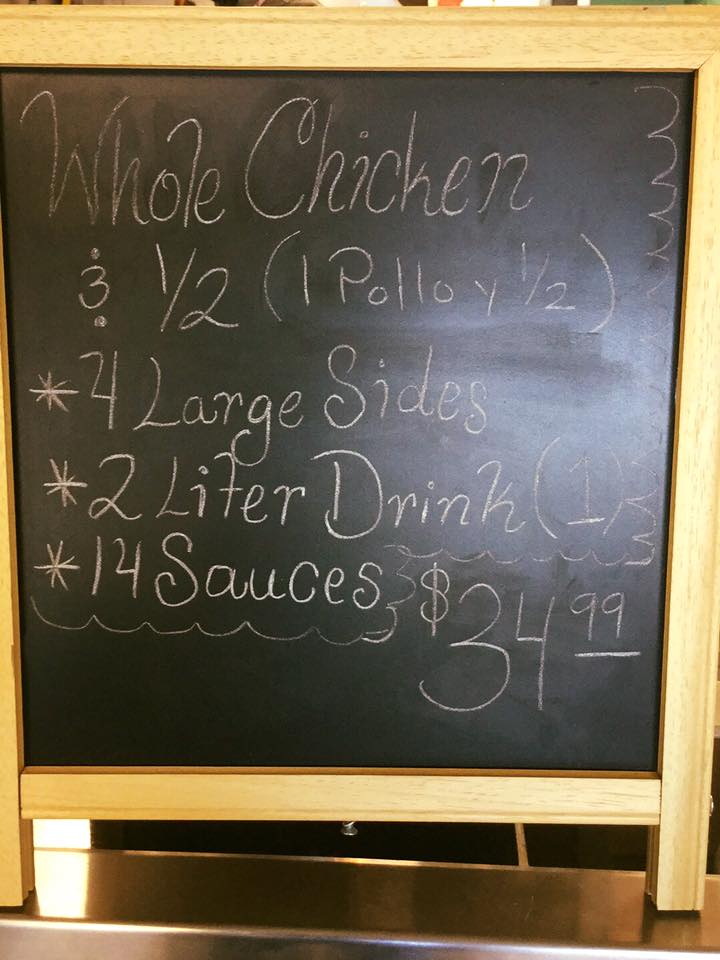 Whole Chicken
& 1/2 (1 Pollo y 1/2)
*4 Large Sides
*2 Liter Drink (1)
*14 Sauces
$34.99